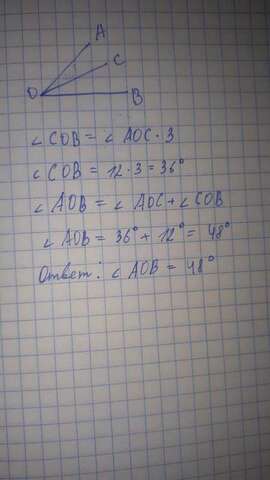 A
C
O
B
∠ COB = ∠ AOC · 3
∠ COB = 12 · 3 = 36°
∠ AOB = ∠ AOC + ∠ COB
∠ AOB = 36° + 12° = 48°
Ответ: ∠ AOB = 48°